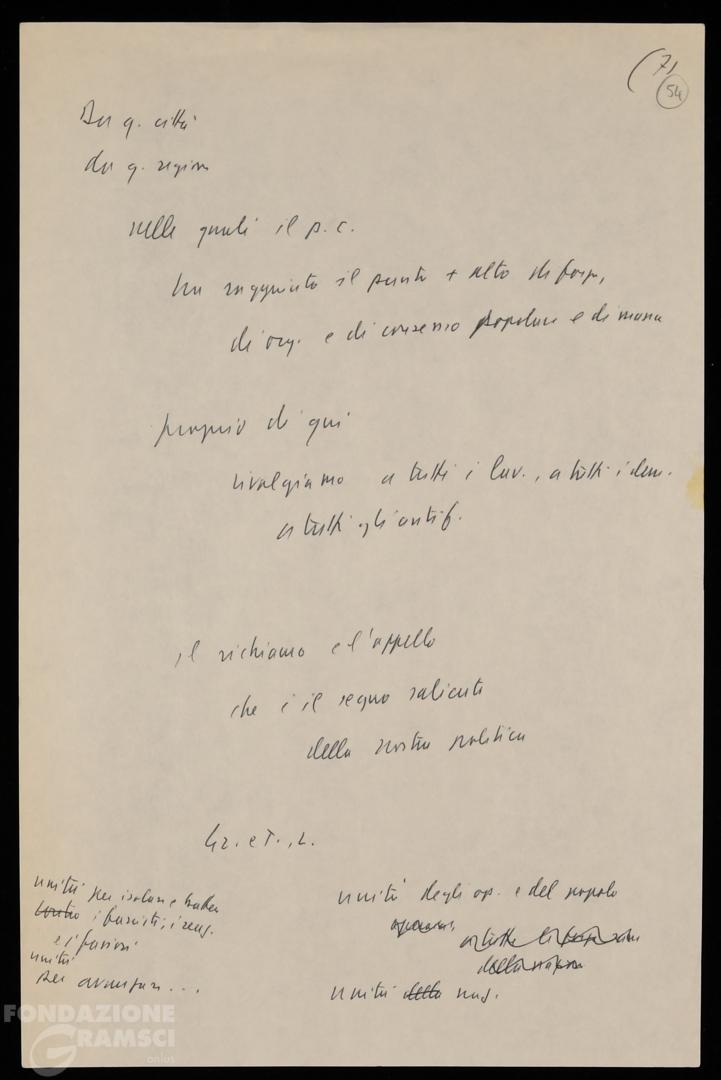 (7)
54
Da q. città
da q. regione
nelle quali il p.c.
ha raggiunto il punto + alto di forza,
di org. e di consenso popolare e di massa
proprio di qui
rivolgiamo a tutti i lav., a tutti i dem.
a tutti gli antif.
il richiamo e l'appello
che è il segno saliente
della nostra politica
Gr. e T., L.
unità per isolare e battere
contro i fascisti, i reaz.
e i faziosi
unità
per avanzare...
unità degli op. e del popolo
della
unità della naz.
FONDAZIONE
GRAMSCI
onlus